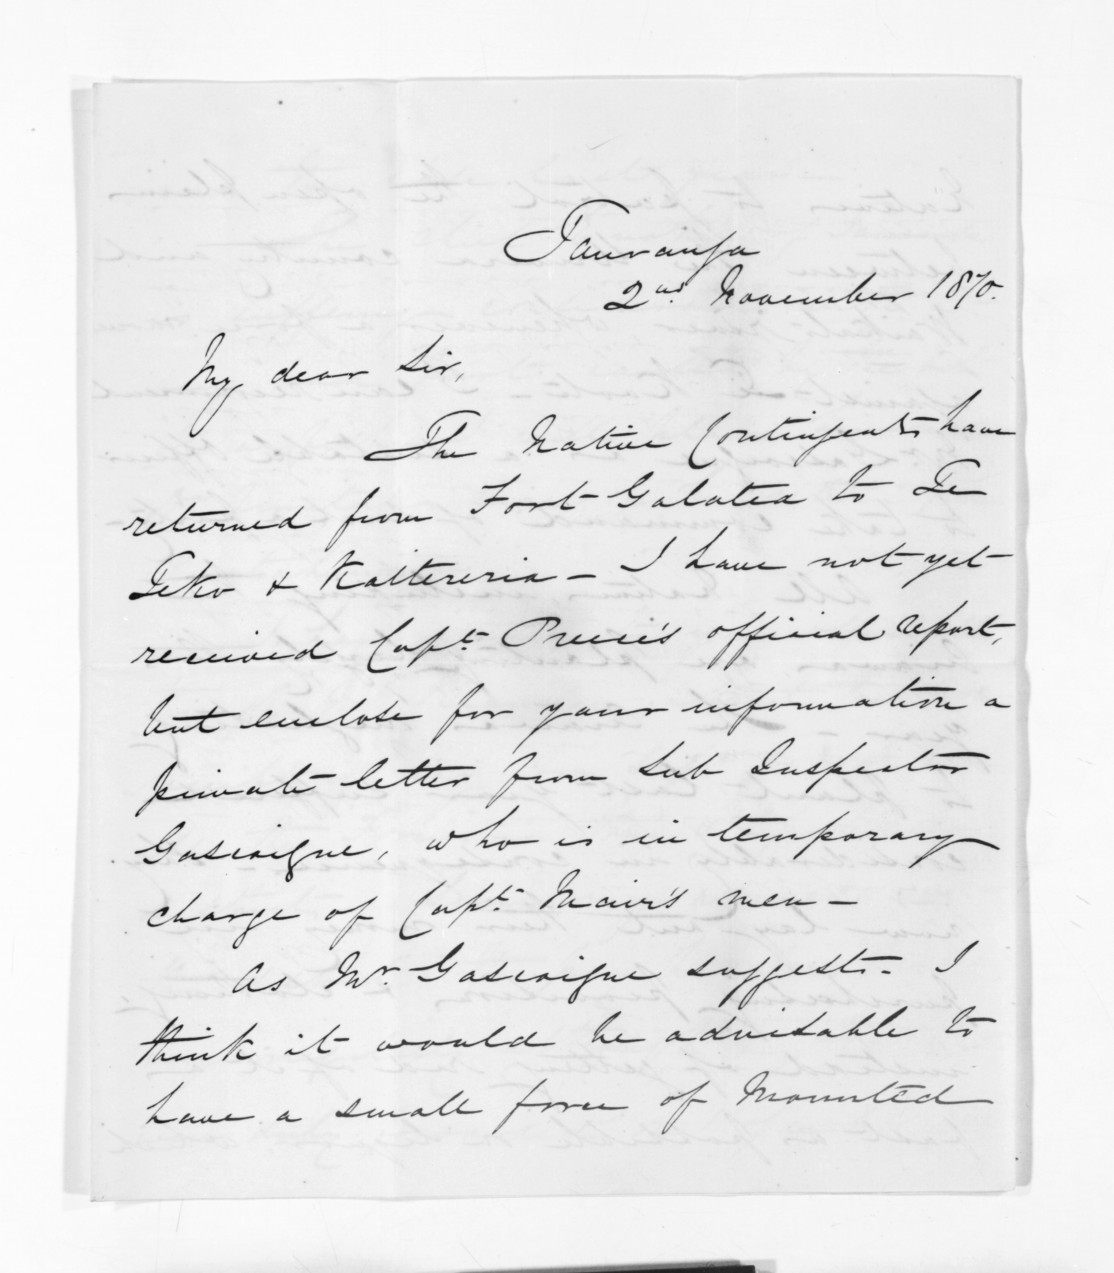 Tauranga
2nd. November 1870.
My dear Sir,
The Native Contingents have
returned from Fort Galatea to Te
Teko & Kaitereria - I have not yet
received Capt. Preece's official report,
but enclose for your information a
private letter from Sub Inspector
Gascoigne, who is in temporary
charge of Capt. Mair's men -
As Mr. Gascoigne suggests - I
think it would be advisable to
have a small force of Mounted